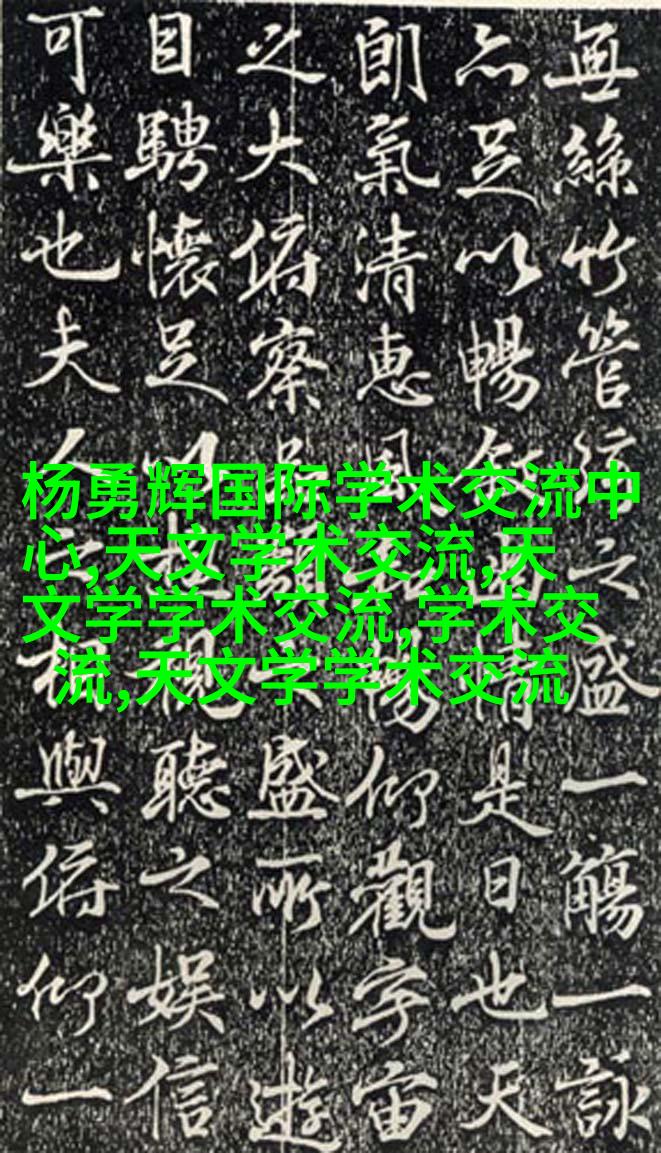 無絲竹管絃之盛一觴一詠
亦足以暢敘幽情是日也天
朗氣清惠風和暢仰觀宇宙
之大俯察品類之盛所以遊
目騁懷足以極視聽之娛信
可樂也夫人之相與俯仰一
杨勇辉国际学术交流中
心,天文学术交流,天
文学学术交流,学术交
流,天文学学术交流